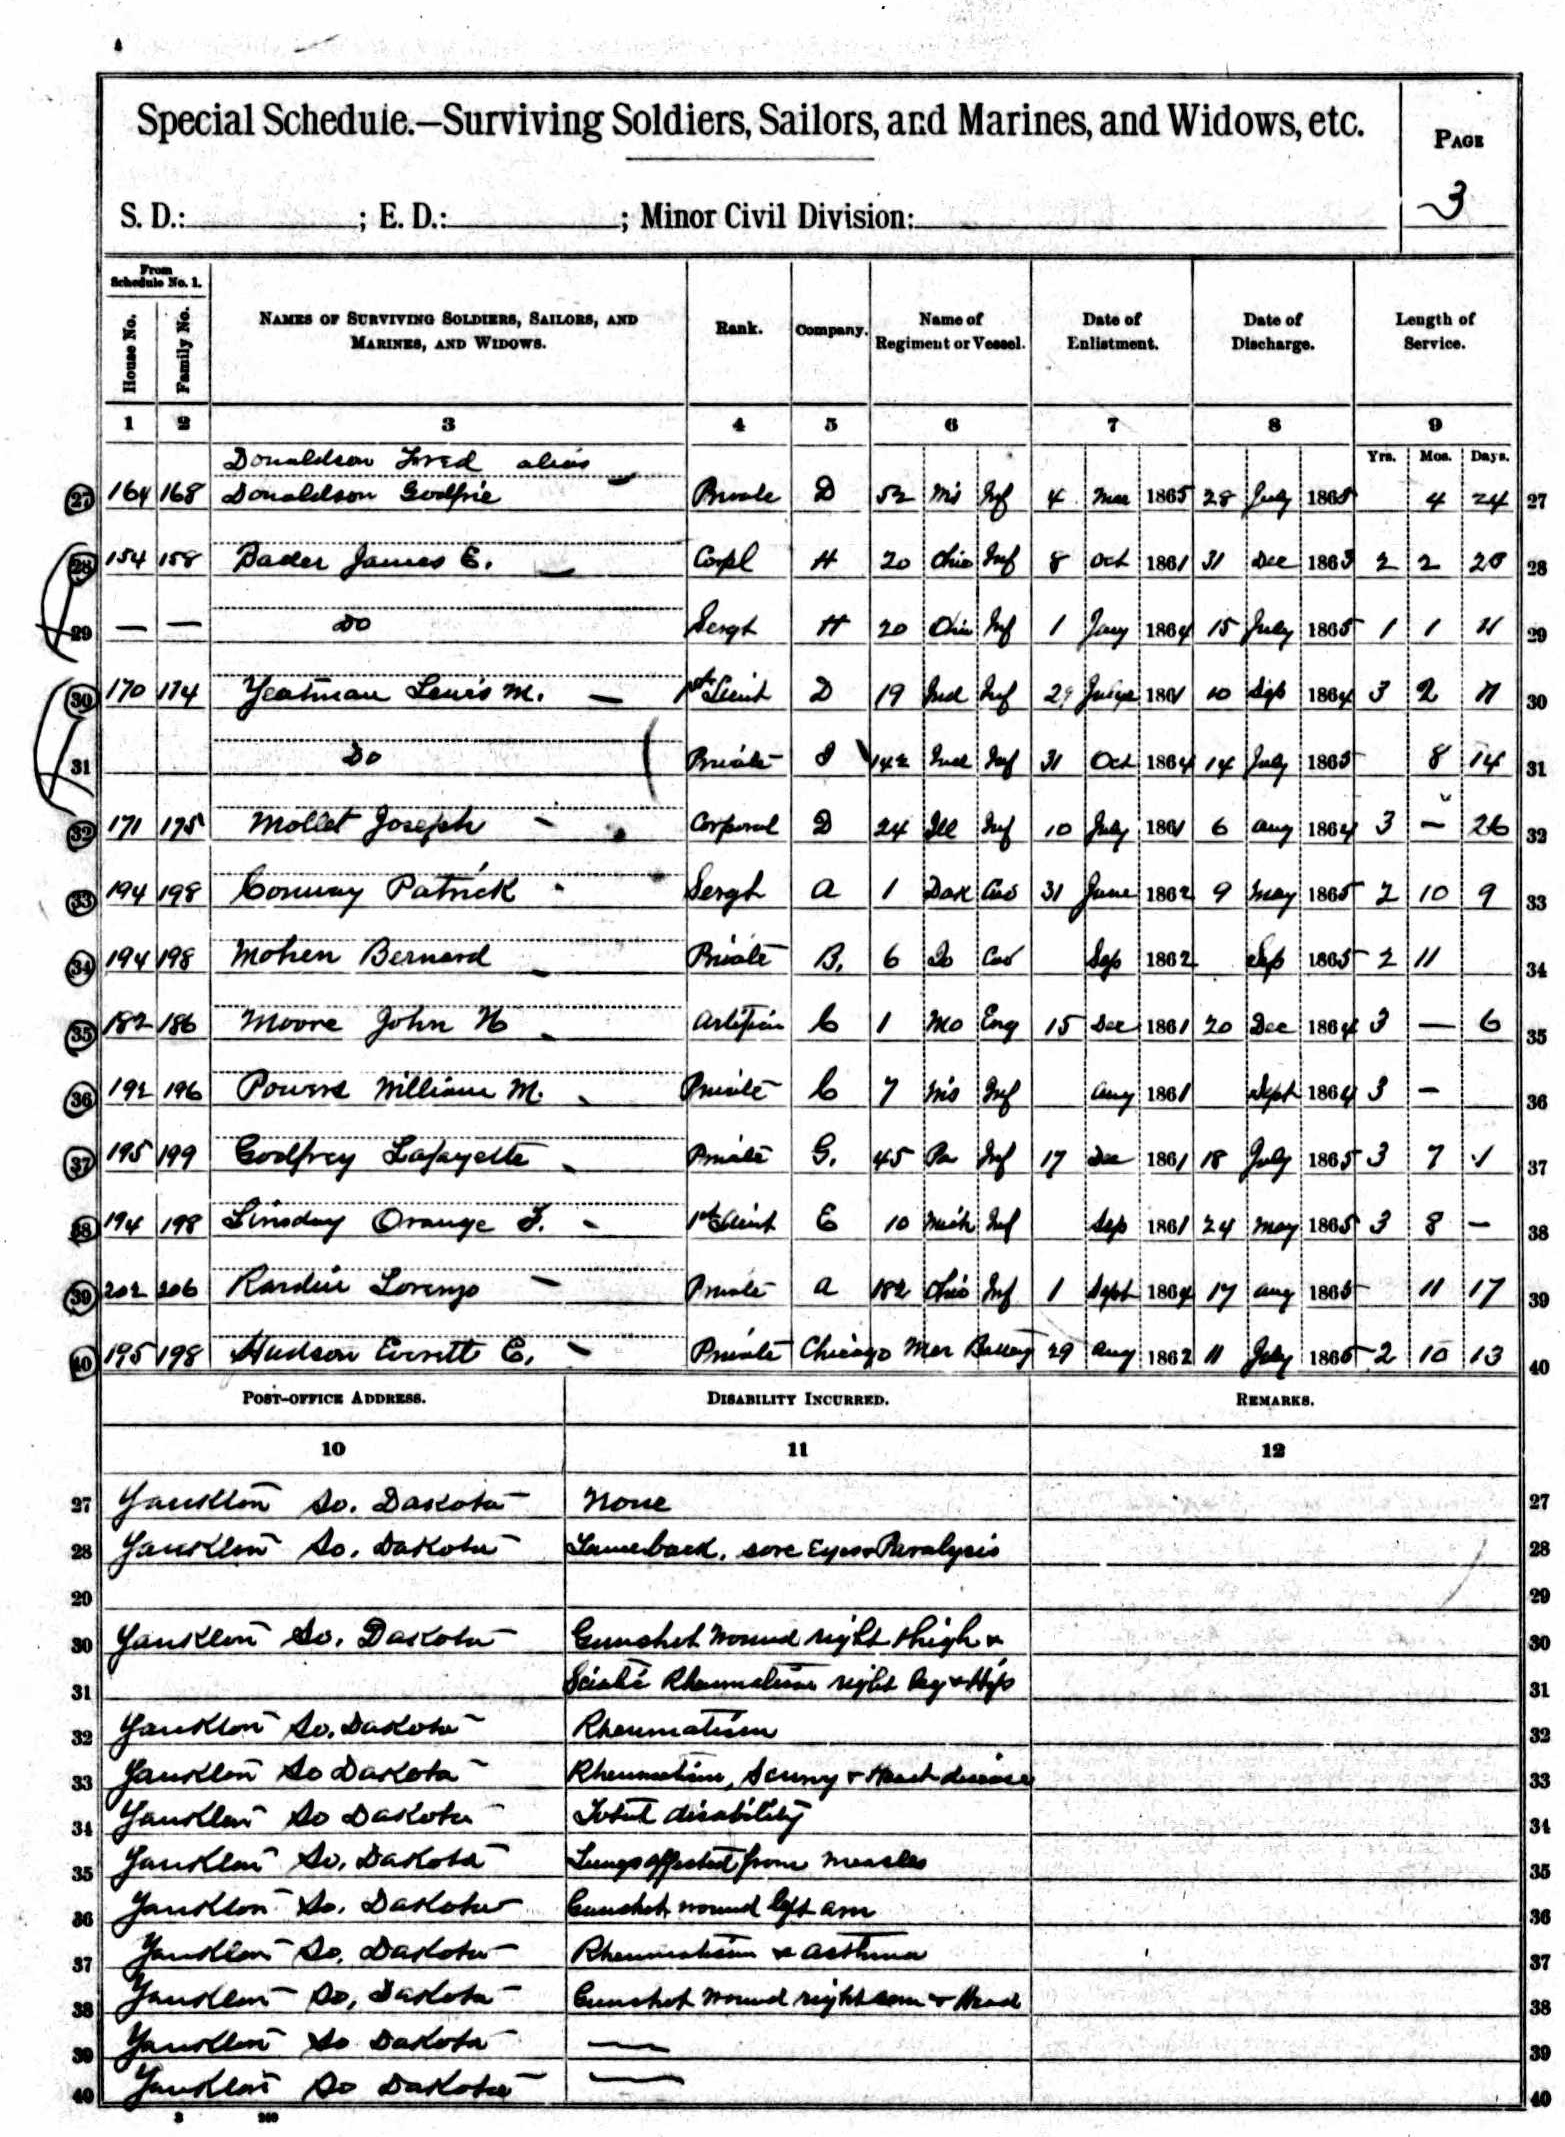 Special Schedule.—Surviving Soldiers, Sailors, and Marines, and Widows, etc.
PAGE
3
S. D.: ; E. D.: ; Minor Civil Division:
From Schedule No. 1.
House No.
Family No.
NAMES OF SURVIVING SOLDIERS, SAILORS, AND MARINES, AND WIDOWS.
Rank.
Company.
Name of Regiment or Vessel.
Date of Enlistment.
Date of Discharge.
Length of Service.
1 2 3 4 5 6 7 8 9
Yrs. Mos. Days.
Donaldson Fred alias
27 164 168 Donaldson Godfrie Private D 52 Wis Inf 4 Mar 1865 28 July 1865 4 24 27
28 154 158 Bader James E. Corpl H 20 Ohio Inf 8 Oct 1861 31 Dec 1863 2 2 28
29 — — Do Sergt H 20 Ohio Inf 1 Jany 1864 15 July 1865 1 1 29
30 170 174 Yeatman Lewis M. 1st Lieut D 19 Ind Inf 29 1861 10 Sep 1864 3 2 11 30
31 Do Private I 142 Ind Inf 31 Oct 1864 14 July 1865 8 14 31
32 171 175 Mollet Joseph Corporal D 24 Ill Inf 10 July 1861 6 Aug 1864 3 — 26 32
33 194 198 Conway Patrick Sergt A 1 Dak Cav 31 June 1862 9 May 1865 2 10 9 33
34 194 198 Mohen Bernard Private B. 6 Do Cav Sep 1862 Sep 1865 2 11 34
35 182 186 Moore John N Artificer C 1 Mo Eng 15 Dec 1861 20 Dec 1864 3 — 6 35
36 192 196 Powers William M. Private C 7 Wis Inf Aug 1861 Sept 1864 3 — 36
37 195 199 Godfrey Lafayette Private G. 45 Pa Inf 17 Dec 1861 18 July 1865 3 7 1 37
38 194 198 Linsday Orange F. 1st Lieut E 10 Mich Inf Sep 1861 24 May 1865 3 8 — 38
39 202 206 Rardin Lorenzo Private A 182 Ohio Inf 1 Sept 1864 17 Aug 1865 11 17 39
40 195 198 Hudson Everett E. Private Chicago Mer Battery 29 Aug 1862 11 July 1865 2 10 13 40
POST-OFFICE ADDRESS. DISABILITY INCURRED. REMARKS.
10 11 12
27 Yankton So. Dakota None 27
28 Yankton So. Dakota Lameback, sore Eyes & Paralysis 28
29 29
30 Yankton So. Dakota Gunshot wound right thigh & 30
31 Sciatic Rheumatism right leg & Hip 31
32 Yankton So. Dakota Rheumatism 32
33 Yankton So Dakota Rheumatism, Scurvy & Heart disease 33
34 Yankton So Dakota Total disability 34
35 Yankton So. Dakota Lungs affected from Measles 35
36 Yankton So. Dakota Gunshot wound left arm 36
37 Yankton So. Dakota Rheumatism & asthma 37
38 Yankton So. Dakota Gunshot wound right arm & Head 38
39 Yankton So Dakota — 39
40 Yankton So Dakota — 40